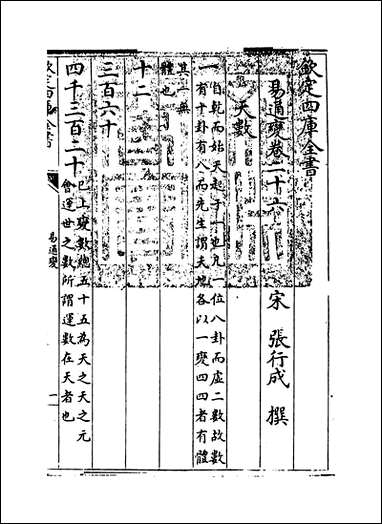 欽定四庫全書
易通變卷二十六
宋　張行成　撰
天數
一　自乾而始天起于一也凡一位八卦而虛二數故數
有十卦有八而先生謂天地各以一變四四者有體
其一無
體也
十二
三百六十
四千三百二十　已上變數總五十五為天之天之元
會運世之數所謂運數在天者也
易通變
一